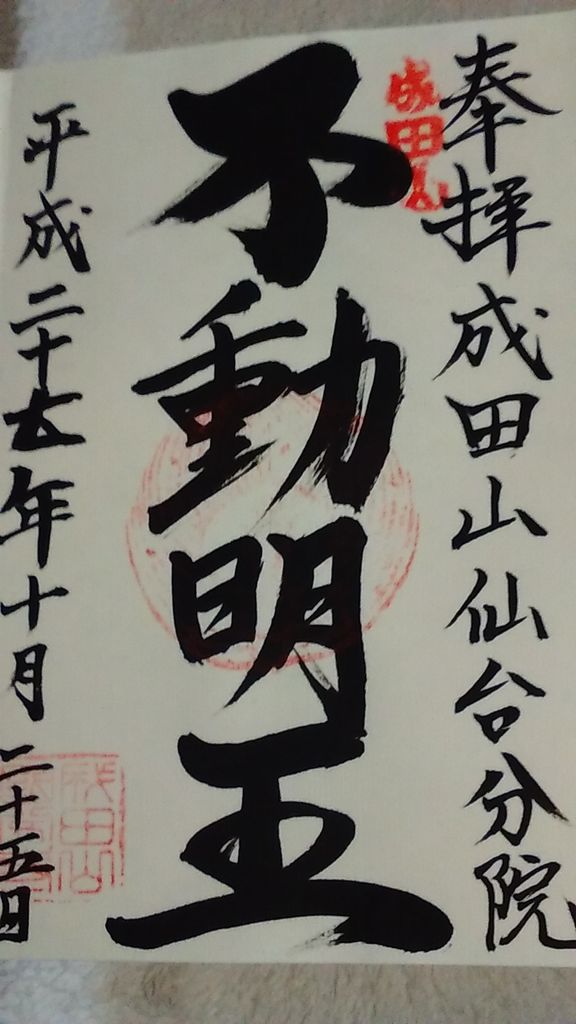 奉拝 成田山仙台分院
成田山
不動明王
平成二十七年十月二十五日